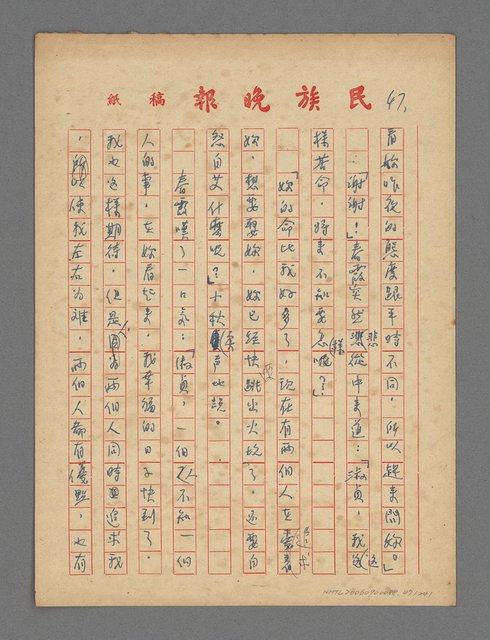 民族晚報稿紙
47,
看妳昨夜的態度跟平時不同,所以趕來問妳。」
「謝謝!」春霞突然悲從中來道:「淑貞,我這
樣苦命,將來不知要怎樣呢?」
「妳的命比我好多了,現在有兩個人在追求
妳,想要娶妳,妳已經快要跳出火坑了,還要自
怨自艾什麼呢?」小秋余声地説。
春霞嘆了一口氣:「淑貞,一個人不知一個
人的事,在妳看起來,我幸福的日子快到了。
我也這樣期待。但是,因為兩個人同時追求我
,所以使我左右為難,兩個人都有優點,也有
NMTL20060900088 47/241